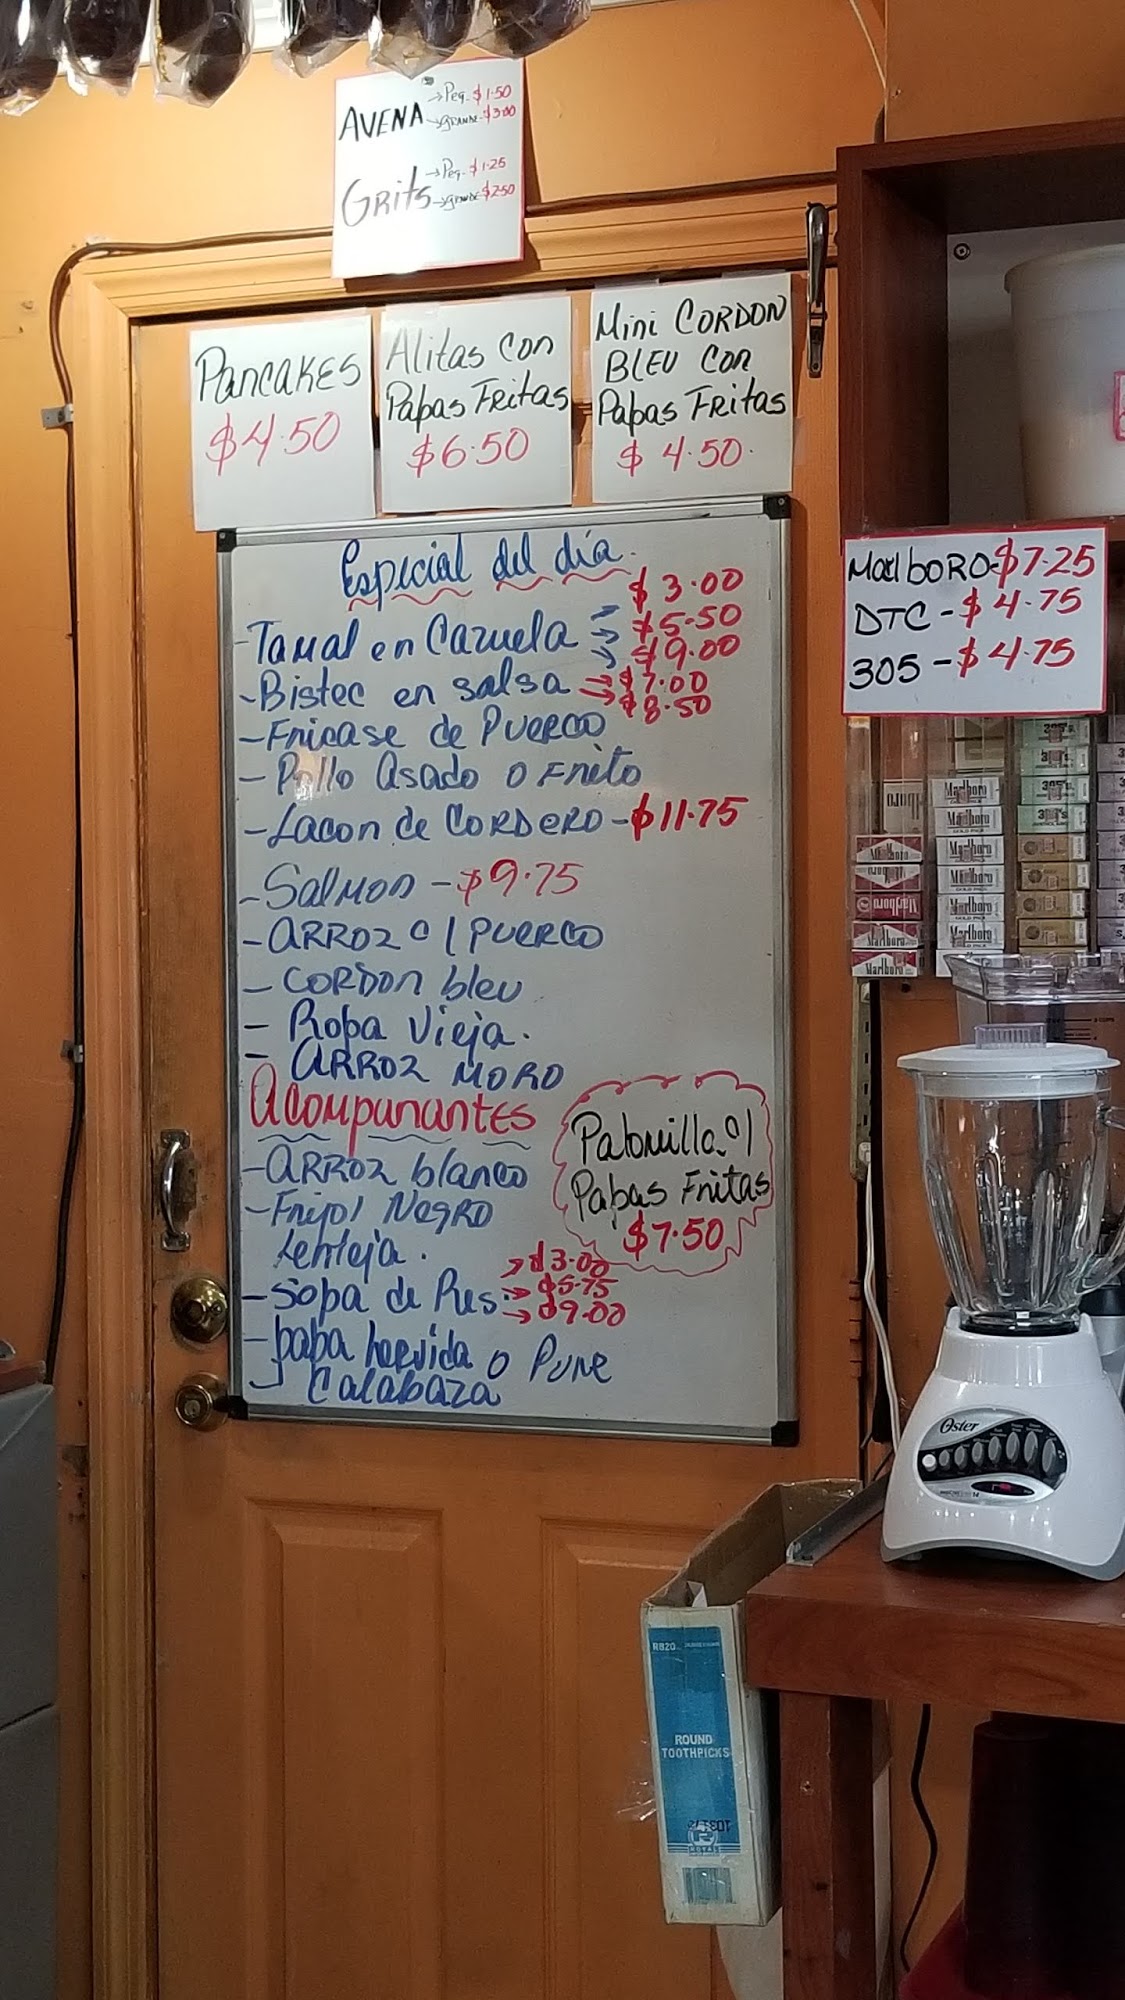 AVENA →Peq. $1.50
→GRANDE $3.00
Grits →Peq. $1.25
→GRANDE $2.50
PANCAKES
$4.50
Alitas con
Papas Fritas
$6.50
Mini CORDON
BLEU con
Papas FRITAS
$4.50.
Especial del día.
$3.00
-Tamal en Cazuela → $5.50
→ $9.00
-Bistec en salsa →$7.00
→$8.50
-Fricase de Puerco
-Pollo Asado o Frito
-Lacon de CORDERO-$11.75
-Salmon -$9.75
-ARROZ c/ Puerco
-CORDON bleu
-Ropa Vieja.
-ARROZ MORO
Acompanantes
-ARROZ blanco
-Frijol NEGRO
Lenteja.
→$3.00
-Sopa de Res →$5.75
→$9.00
-papa hervida o Pure
-Calabaza
Palomilla c/
Papas Fritas
$7.50
Marlboro-$7.25
DTC-$4.75
305-$4.75
305's
305's
Marlboro
GOLD PACK
Marlboro
Marlboro
Marlboro
Marlboro
Marlboro
Marlboro
Marlboro
Marlboro
Oster
RB20
ROUND
TOOTHPICKS
ROYAL